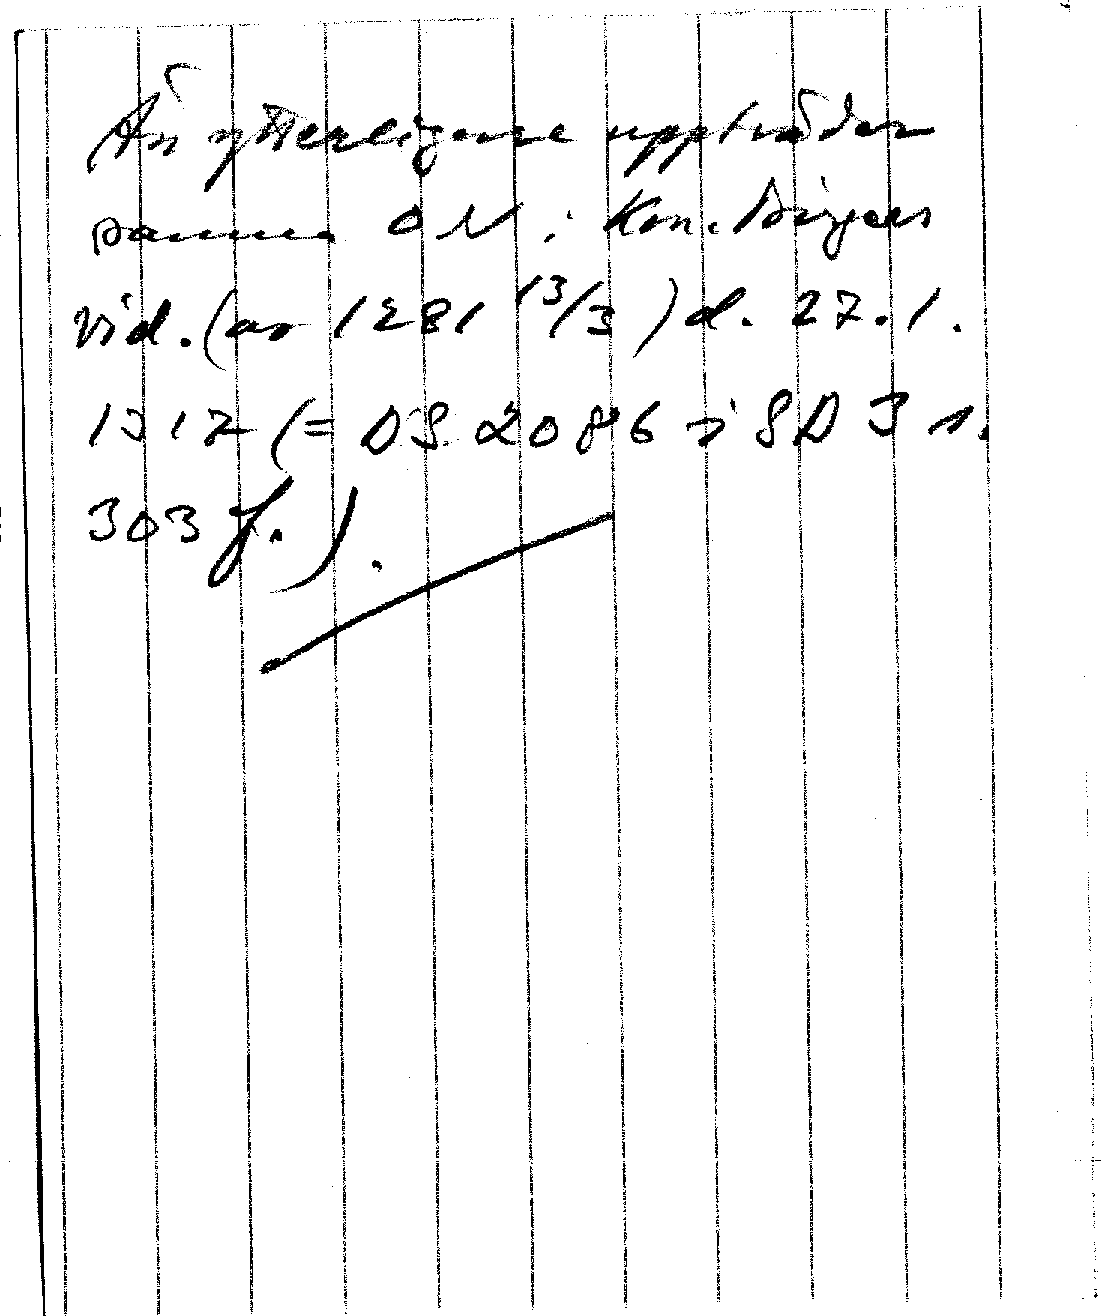 Än ytterligare uppträder
samma ON i Kon. Birgers
vid. (av 1281 13/3) d. 27.1.
1312 (= DS 2086 i SD 3 s.
303 f.).